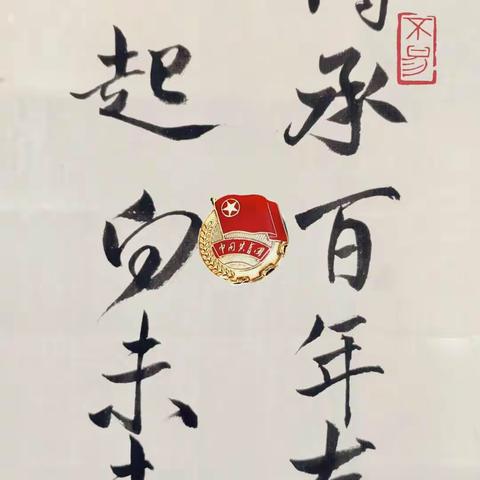 承百年
起向未
中国共青团
不易